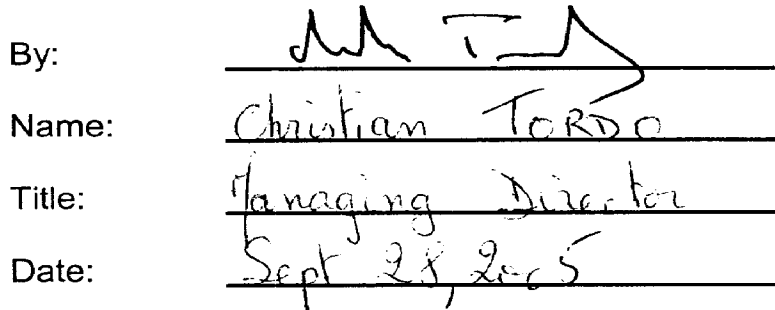 By:
Name: Christian TORDO
Title: Managing Director
Date: Sept 28, 2005